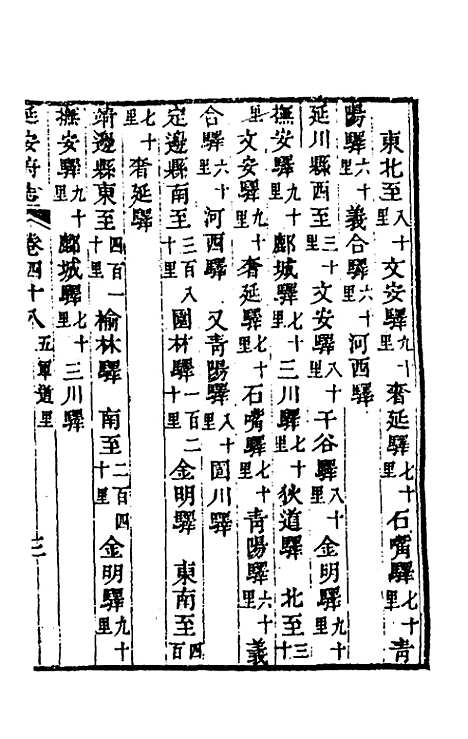 東北至八十里文安驛九十里奢延驛七十里石嘴驛七十里青
陽驛六十里義合驛六十里河西驛
延川縣西至三十里文安驛八十里干谷驛八十里金明驛九十里
撫安驛九十里鄜城驛七十里三川驛七十里狄道驛 北至三十
里文安驛九十里奢延驛七十里石嘴驛七十里青陽驛六十里義
合驛六十里河西驛 又青陽驛八十里圁川驛
定邊縣南至三百八十里園林驛一百二十里金明驛 東南至四百
七十里奢延驛
靖邊縣東至四百一十里榆林驛 南至二百四十里金明驛九十里
撫安驛九十里鄜城驛七十里三川驛
延安府志 卷四十八 五軍道里